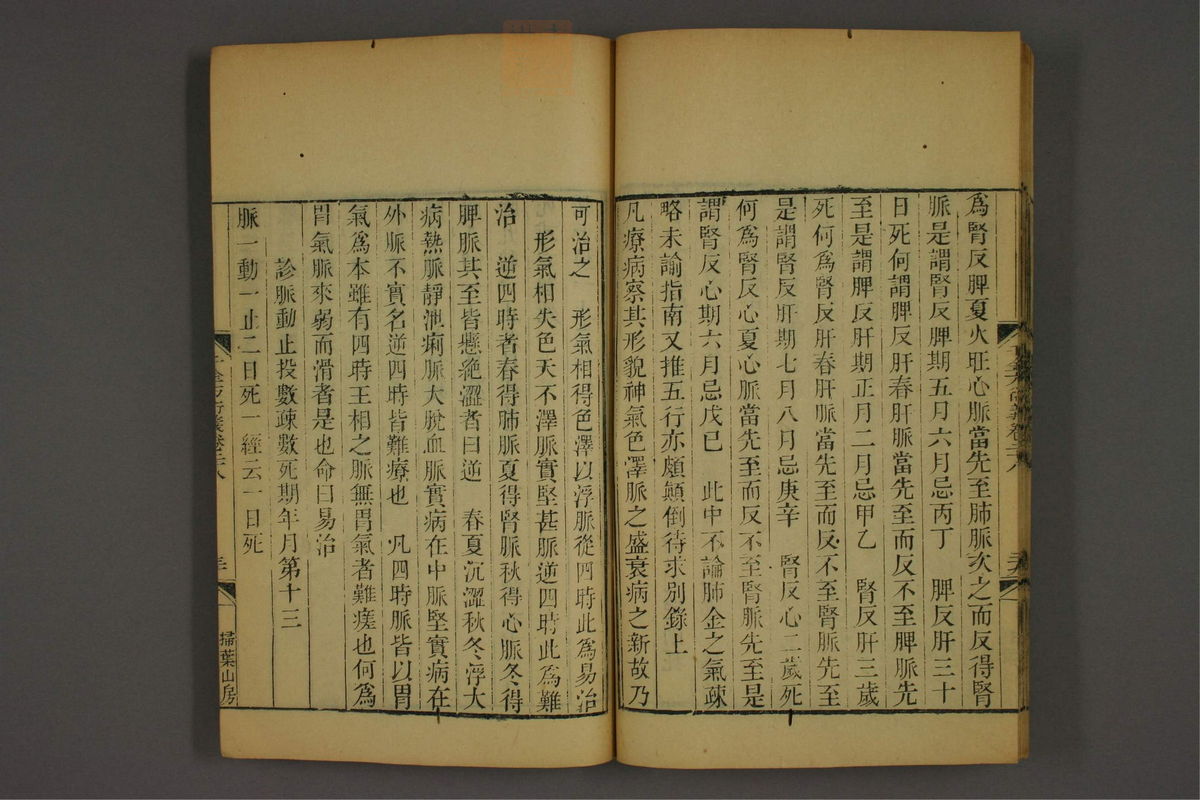 為腎反脾夏火旺心脈當先至肺脈次之而反得腎
脈是謂腎反脾期五月六月忌丙丁　脾反肝三十
日死何謂脾反肝春肝脈當先至而反不至脾脈先
至是謂脾反肝期正月二月忌甲乙　腎反肝三歲
死何為腎反肝春肝脈當先至而反不至腎脈先至
是謂腎反肝期七月八月忌庚辛　腎反心二歲死
何為腎反心夏心脈當先至而反不至腎脈先至是
謂腎反心期六月忌戊巳　此中不論肺金之氣疎
略未諭指南又推五行亦頗顛倒待求別錄上
凡療病察其形貌神氣色澤脈之盛衰病之新故乃
可治之　形氣相得色澤以浮脈從四時此為易治
形氣相失色天不澤脈實堅甚脈逆四時此為難
治　逆四時者春得肺脈夏得腎脈秋得心脈冬得
脾脈其至皆懸絕澀者曰逆　春夏沉澀秋冬浮大
病熱脈靜泄痢脈大脫血脈實病在中脈堅實病在
外脈不實名逆四時皆難療也　凡四時脈皆以胃
氣為本雖有四時王相之脈無胃氣者難瘥也何為
胃氣脈來弱而滑者是也命曰易治
診脈動止投數疎數死期年月第十三
脈一動一止二日死一經云一日死
卷二十八
掃葉山房